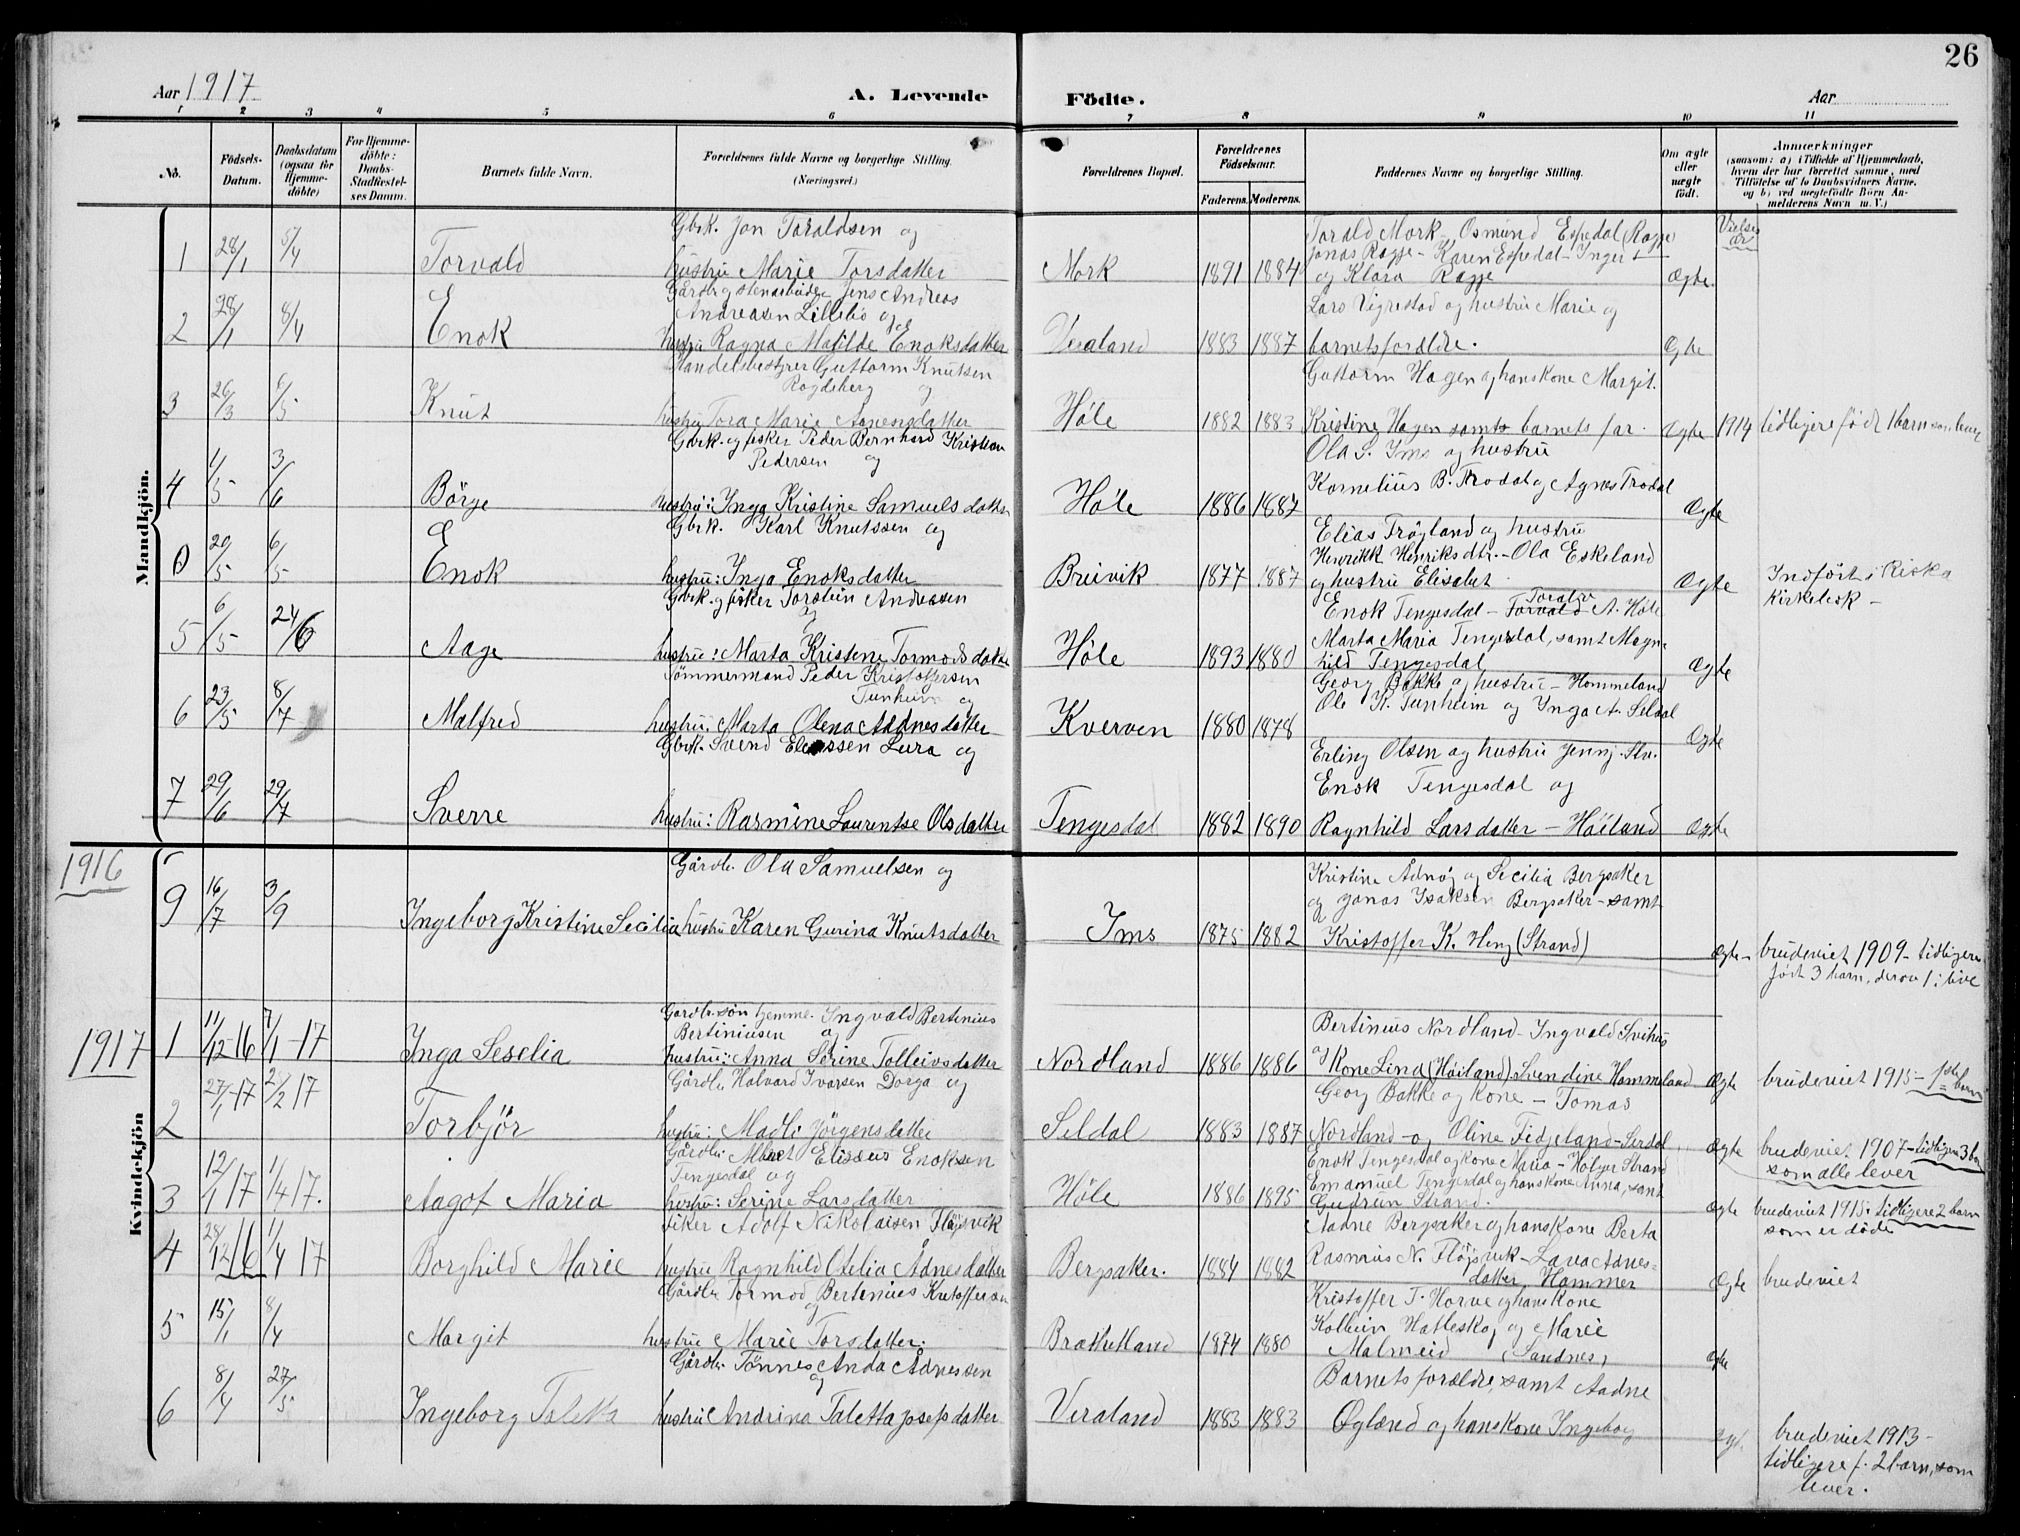 26
Aar 1917
A. Levende
Födte.
Aar
1 2 3 4 5 6 7 8 9 10 11
No.
Födsels-Datum.
Daabsdatum (ogsaa for Hjemmedöbte)
For Hjemmedöbte: Daabs-Stadfæstelses Datum.
Barnets fulde Navn.
Forældrenes fulde Navne og borgerlige Stilling. (Næringsvei.)
Forældrenes Bopæl.
Forældrenes Födselsaar.
Faderens. Moderens.
Faddernes Navne og borgerlige Stilling.
Om ægte eller uægte födt.
Anmærkninger
(saasom: a) i Tilfælde af Hjemmedaab, hvem der har forrettet samme, med Tilföielse af to Daabsvidners Navne, og b) ved uegtefödte Börn Anmelderens Navn m. V.)
Vielses år
Mandkjön.
Gbrk. Jon Toraldsen og
Torald Mork - Osmund Espedal (Ragje
Jonas Ragje - Karen Espedal - Inger
1 28/1 5/4 Torvald hustru Marie Torsdatter Mork 1891 1884 og Klara Ragje Ægte.
Gårdbr og stenarbeider Jens Andreas
Andreasen Lillebö og
Lars Vigrestad og hustru Marie og
2 28/1 8/4 Enok hustru Ragna Matilde Enoksdatter Veraland 1883 1887 barnets forældre. Ægte
Handelsbestyrer Guttorm Knutsen
Rogdeberg og
Guttorm Hagen og hans kone Margit.
3 26/3 6/5 Knut hustru Tora Marie Aanensdatter Høle 1882 1883 Kristine Hagen samt barnets far. Ægte 1914 tidligere født 1 barn som lever
Gbrk. og fisker Peder Bernhard Kristian
Pedersen og
Ola S. Ims og hustru
Kornelius B. Trodal og Agnes Trodal
4 1/5 3/6 Börge hustru: Inga Kristine Samuelsdatter Høle 1886 1887 Ægte
Gbrk. Karl Knutssen og
Elias Frøyland og hustru
Henrikk Henriksdtr. - Ola Eskeland
0 20/5 6/5 Enok hustru: Inga Enoksdatter Breivik 1877 1887 og hustru Elisabet Ægte Indført i Riska
Kirkebok -
Gbrk. og fisker Torstein Andreasen
og
Enok Tengesdal - Torvald A. Høle
Marta Maria Tengesdal, samt Magn-
5 6/5 24/6 Aage hustru: Marta Kristene Tormodsdatter Høle 1893 1880 hild Tengesdal Ægte
Tömmermand Peder Kristofersen
Tunheim og
Georg Bakke og hustru - Hommeland
Ole K. Tunheim og Inga A. Seldal
6 23/5 8/7 Malfred hustru: Marta Olena Aadnesdatter Kverven 1880 1878 Ægte
Gbrk. Svend Eliassen Lura og
Erling Olsen og hustru Jenny. Stv.
Enok Tengesdal og
7 29/6 29/7 Sverre hustru: Rasmine Laurentse Olsdatter Tengesdal 1882 1890 Ragnhild Larsdatter - Høiland Ægte
1916
Kvindekjön
Gårdbr. Ola Samuelsen og
Kristine Adnøj og Secilia Bergsaker
og Jonas Isaksen Bergsaker - samt
9 16/7 3/9 Ingeborg Kristine Secilia hustru Karen Gurina Knutsdatter Ims 1875 1882 Kristoffer K. Heng (Strand) Ægte - brudeviet 1909 - tidligere
født 3 barn, derav 1 i live
1917
Gårdbr.søn hjemme. Ingvald Bertinius
Bertiniusen og
Bertinius Nordland - Ingvald Svihus
1 11/12-16 7/1-17 Inga Seselia hustru: Anna Sørine Tolleivsdatter Nordland 1886 1886 og Kone Lina (Høiland) Svendine Hommeland Ægte brudeviet 1915 - 1ste barn
Gårdbr Halvard Ivarsen Dorga og
Georg Bakke og kone - Tomas
2 27/1-17 25/2 17 Torbjör hustru: Madli Jörgensdatter Seldal 1883 1887 Nordland - og Oline Fidjeland - Seldal Ægte brudeviet 1907 - tidligere 3 barn
som alle lever
Gårdbr. Elisæus Enoksen
Tengesdal og
Enok Tengesdal og kone Maria - Holger Strand
Emanuel Tengesdal og hans kone Anna, samt
3 12/1 17 1/4 17. Aagot Maria hustru: Serine Larsdatter Høle 1886 1895 Gudrun Strand. Ægte brudeviet 1915. tidligere 2 barn
som er døde
fisker Adolf Nikolaisen Fløysvik
Aadne Bergsaker og hans kone Berta
Rasmus N. Fløjsvik - Lava Adnes-
4 28/12 16 1/4 17 Borghild Marie hustru Ragnhild Otelia Ådnesdatter Bergsaker. 1884 1882 datter Hammer Ægte brudeviet
Gårdbr Tormod Bertinius Kristoffersen
og
Kristoffer T. Horve og hans kone
Kolbein Hatleskog og Marie
5 15/1 8/4 Margit hustru Marie Torsdatter. Brattetland 1874 1880 Malmeid (Sandnes) Ægte
Gårdbr. Tönnes Anda Ådnessen
og
Barnets forældre, samt Aadne
6 8/4 27/5 Ingeborg Taletta hustru Andrina Taletta Josefsdatter Veraland 1883 1883 Øglænd og hans kone Ingeborg Ægt. brudeviet 1913 -
tidligere f. 2 barn, som
lever.